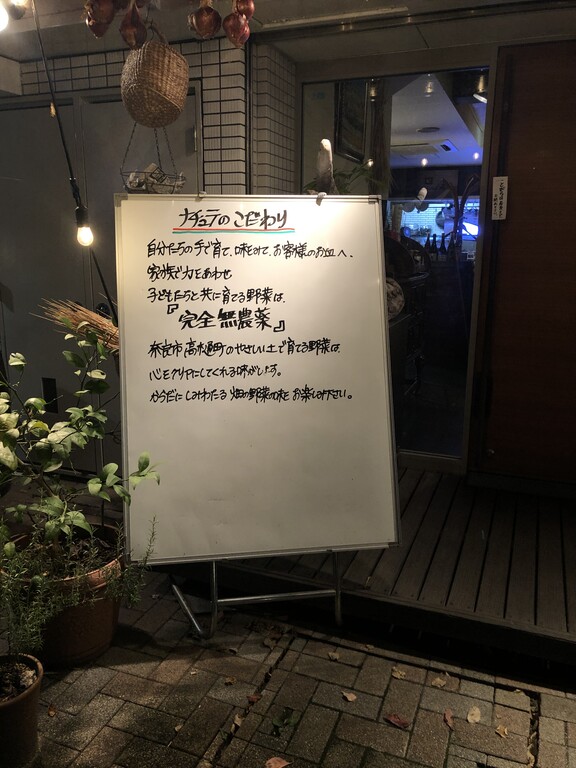 ナチュラのこだわり
自分たちの手で育て、味をみて、お客様のお皿へ、
家族で力をあわせ
子どもたちと共に育てる野菜は、
『完全無農薬』
奈良市高樋町のやさしい土で育てる野菜は、
心をクリアにしてくれる味がします。
からだにしみわたる畑の野菜の味をお楽しみ下さい。